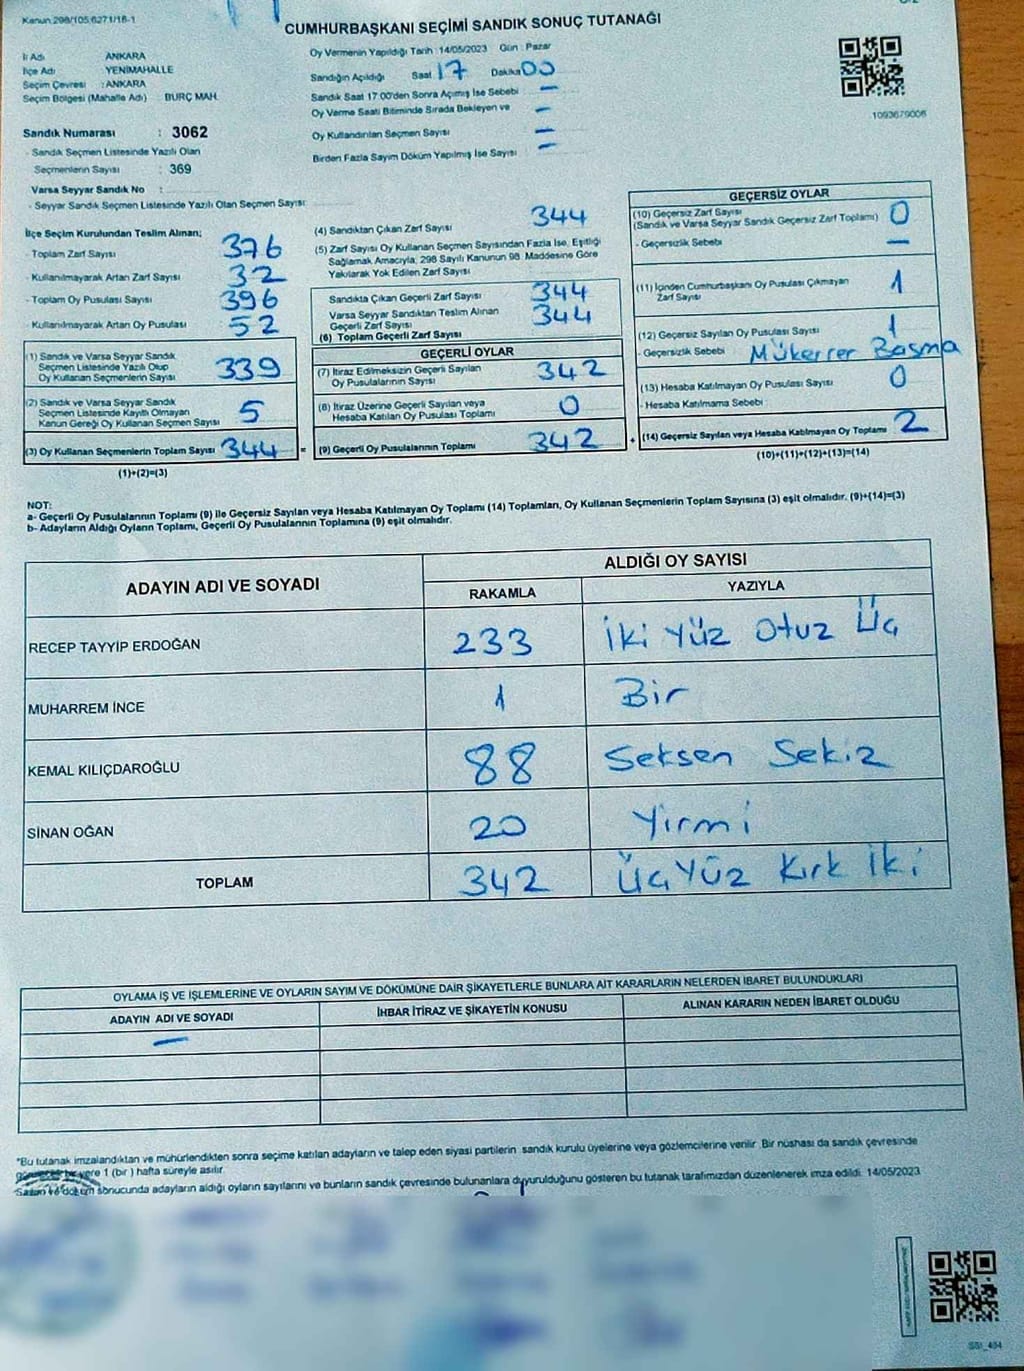 Kanun 298/105,6271/18-1
CUMHURBAŞKANI SEÇİMİ SANDIK SONUÇ TUTANAĞI
İl Adı ANKARA
İlçe Adı YENİMAHALLE
Seçim Çevresi : ANKARA
Seçim Bölgesi (Mahalle Adı) BURÇ MAH.
Oy Vermenin Yapıldığı Tarih : 14/05/2023 Gün : Pazar
Sandığın Açıldığı Saat 17 Dakika 00
Sandık Saat 17.00'den Sonra Açılmış İse Sebebi —
Oy Verme Saati Bitiminde Sırada Bekleyen ve —
Oy Kullandırılan Seçmen Sayısı —
Birden Fazla Sayım Döküm Yapılmış İse Sayısı —
1093679006
Sandık Numarası : 3062
- Sandık Seçmen Listesinde Yazılı Olan
Seçmenlerin Sayısı : 369
Varsa Seyyar Sandık No :
- Seyyar Sandık Seçmen Listesinde Yazılı Olan Seçmen Sayısı:
İlçe Seçim Kurulundan Teslim Alınan;
- Toplam Zarf Sayısı 376
- Kullanılmayarak Artan Zarf Sayısı 32
- Toplam Oy Pusulası Sayısı 396
- Kullanılmayarak Artan Oy Pusulası 52
(1) Sandık ve Varsa Seyyar Sandık
Seçmen Listesinde Yazılı Olup
Oy Kullanan Seçmenlerin Sayısı 339
(2) Sandık ve Varsa Seyyar Sandık
Seçmen Listesinde Kayıtlı Olmayan
Kanun Gereği Oy Kullanan Seçmen Sayısı 5
(3) Oy Kullanan Seçmenlerin Toplam Sayısı 344 =
(1)+(2)=(3)
(4) Sandıktan Çıkan Zarf Sayısı 344
(5) Zarf Sayısı Oy Kullanan Seçmen Sayısından Fazla İse, Eşitliği
Sağlamak Amacıyla; 298 Sayılı Kanunun 98. Maddesine Göre
Yakılarak Yok Edilen Zarf Sayısı
Sandıkta Çıkan Geçerli Zarf Sayısı 344
Varsa Seyyar Sandıktan Teslim Alınan
Geçerli Zarf Sayısı 344
(6) Toplam Geçerli Zarf Sayısı
GEÇERLİ OYLAR
(7) İtiraz Edilmeksizin Geçerli Sayılan
Oy Pusulalarının Sayısı 342
(8) İtiraz Üzerine Geçerli Sayılan veya
Hesaba Katılan Oy Pusulası Toplamı 0
(9) Geçerli Oy Pusulalarının Toplamı 342 +
GEÇERSİZ OYLAR
(10) Geçersiz Zarf Sayısı
(Sandık ve Varsa Seyyar Sandık Geçersiz Zarf Toplamı) 0
- Geçersizlik Sebebi —
(11) İçinden Cumhurbaşkanı Oy Pusulası Çıkmayan
Zarf Sayısı 1
(12) Geçersiz Sayılan Oy Pusulası Sayısı 1
- Geçersizlik Sebebi Mükerrer Basma
(13) Hesaba Katılmayan Oy Pusulası Sayısı 0
- Hesaba Katılmama Sebebi :
(14) Geçersiz Sayılan veya Hesaba Katılmayan Oy Toplamı 2
(10)+(11)+(12)+(13)=(14)
NOT:
a- Geçerli Oy Pusulalarının Toplamı (9) ile Geçersiz Sayılan veya Hesaba Katılmayan Oy Toplamı (14) Toplamları, Oy Kullanan Seçmenlerin Toplam Sayısına (3) eşit olmalıdır. (9)+(14)=(3)
b- Adayların Aldığı Oyların Toplamı, Geçerli Oy Pusulalarının Toplamına (9) eşit olmalıdır.
ADAYIN ADI VE SOYADI ALDIĞI OY SAYISI
RAKAMLA YAZIYLA
RECEP TAYYİP ERDOĞAN 233 İki Yüz Otuz Üç
MUHARREM İNCE 1 Bir
KEMAL KILIÇDAROĞLU 88 Seksen Sekiz
SİNAN OĞAN 20 Yirmi
TOPLAM 342 Üç Yüz Kırk İki
OYLAMA İŞ VE İŞLEMLERİNE VE OYLARIN SAYIM VE DÖKÜMÜNE DAİR ŞİKAYETLERLE BUNLARA AİT KARARLARIN NELERDEN İBARET BULUNDUKLARI
ADAYIN ADI VE SOYADI İHBAR İTİRAZ VE ŞİKAYETİN KONUSU ALINAN KARARIN NEDEN İBARET OLDUĞU
—
*Bu tutanak imzalandıktan ve mühürlendikten sonra seçime katılan adayların ve talep eden siyasi partilerin sandık kurulu üyelerine veya gözlemcilerine verilir. Bir nüshası da sandık çevresinde
bir yere 1 (bir ) hafta süreyle asılır.
Sayım ve döküm sonucunda adayların aldığı oyların sayılarını ve bunların sandık çevresinde bulunanlara duyurulduğunu gösteren bu tutanak tarafımızdan düzenlenerek imza edildi. 14/05/2023